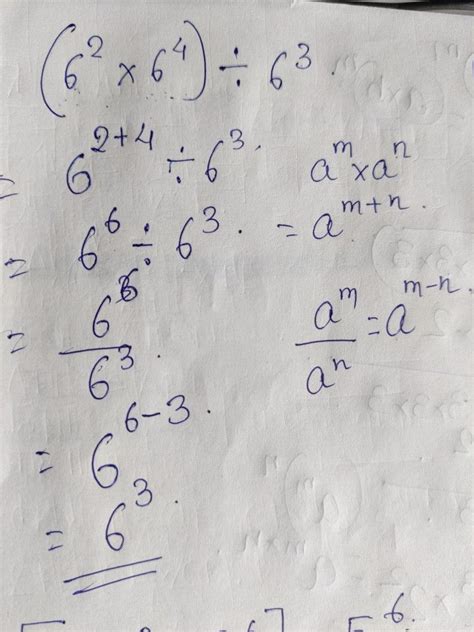 (6² × 6⁴) ÷ 6³.
= 6²⁺⁴ ÷ 6³.
aᵐ×aⁿ
= 6⁶ ÷ 6³.
= aᵐ⁺ⁿ.
= 6⁶/6³.
aᵐ/aⁿ = aᵐ⁻ⁿ.
= 6⁶⁻³.
= 6³.